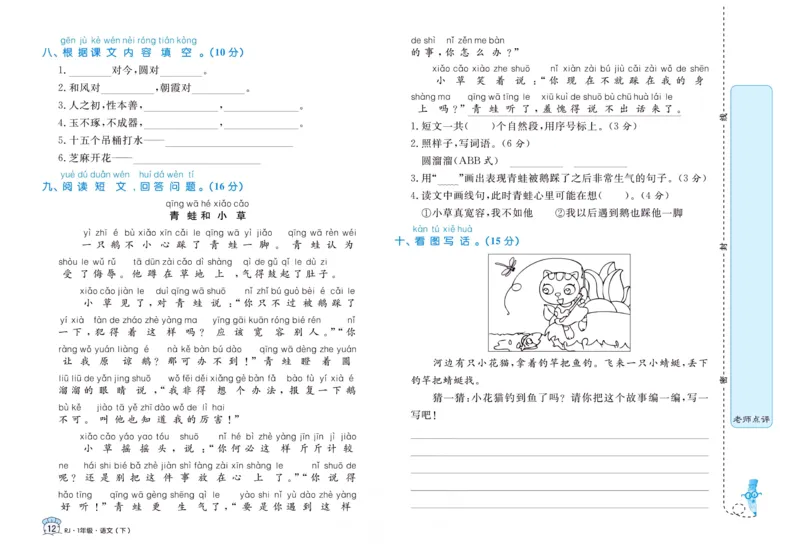 gēn jù kè wén nèi róng tián kòng
八、根据课文内容填空。(10分)
1.________对今,圆对________。
2.和风对__________,朝霞对__________。
3.人之初,性本善,______________,______________。
4.玉不琢,不成器,______________,______________。
5.十五个吊桶打水——______________________
6.芝麻开花——______________________
yuè dú duǎn wén huí dá wèn tí
九、阅读短文,回答问题。(16分)
qīng wā hé xiǎo cǎo
青蛙和小草
yì zhī é bù xiǎo xīn cǎi le qīng wā yì jiǎo qīng wā rèn wéi
一只鹅不小心踩了青蛙一脚。青蛙认为
shòu le wǔ rǔ tā dūn zài cǎo dì shàng qì de gǔ qǐ le dù zi
受了侮辱。他蹲在草地上,气得鼓起了肚子。
xiǎo cǎo jiàn le duì qīng wā shuō nǐ zhǐ bú guò bèi é cǎi le
小草见了,对青蛙说:“你只不过被鹅踩了
yí xià fàn de zháo zhè yàng ma yīng gāi kuān róng bié rén nǐ
一下,犯得着这样吗?应该宽容别人。”“你
ràng wǒ yuán liàng é nà kě bàn bú dào qīng wā dèng zhe yuán
让我原谅鹅?那可办不到!”青蛙瞪着圆
liū liū de yǎn jing shuō wǒ fēi děi xiǎng gè bàn fǎ bào fù yí xià é
溜溜的眼睛说,“我非得想个办法,报复一下鹅
bù kě jiào tā yě zhī dào wǒ de lì hai
不可。叫他也知道我的厉害!”
xiǎo cǎo yáo yao tóu shuō nǐ hé bì zhè yàng jīn jīn jì jiào
小草摇摇头,说:“你何必这样斤斤计较
ne hái shi bié bǎ zhè jiàn shì fàng zài xīn shàng le nǐ shuō de
呢?还是别把这件事放在心上了。”“你说得
hǎo tīng qīng wā gèng shēng qì le yào shi nǐ yù dào zhè yàng
好听!”青蛙更生气了,“要是你遇到这样
12 RJ·1年级·语文(下)
de shì nǐ zěn me bàn
的事,你怎么办?”
xiǎo cǎo xiào zhe shuō nǐ xiàn zài bú jiù cǎi zài wǒ de shēn
小草笑着说:“你现在不就踩在我的身
shàng ma qīng wā tīng le xiū kuì de shuō bù chū huà lái le
上吗?”青蛙听了,羞愧得说不出话来了。
1.短文一共( )个自然段,用序号标上。(3分)
2.照样子,写词语。(6分)
圆溜溜(ABB式) ________ ________
3.用“____”画出表现青蛙被鹅踩了之后非常生气的句子。(3分)
4.读文中画线句,此时青蛙心里可能在想( )。(4分)
①小草真宽容,我不如他 ②我以后遇到鹅也踩他一脚
kàn tú xiě huà
十、看图写话。(15分)
河边有只小花猫,拿着钓竿把鱼钓。飞来一只小蜻蜓,丢下
钓竿把蜻蜓找。
猜一猜:小花猫钓到鱼了吗?请你把这个故事编一编,写一
写吧!
线
封
密
老师点评